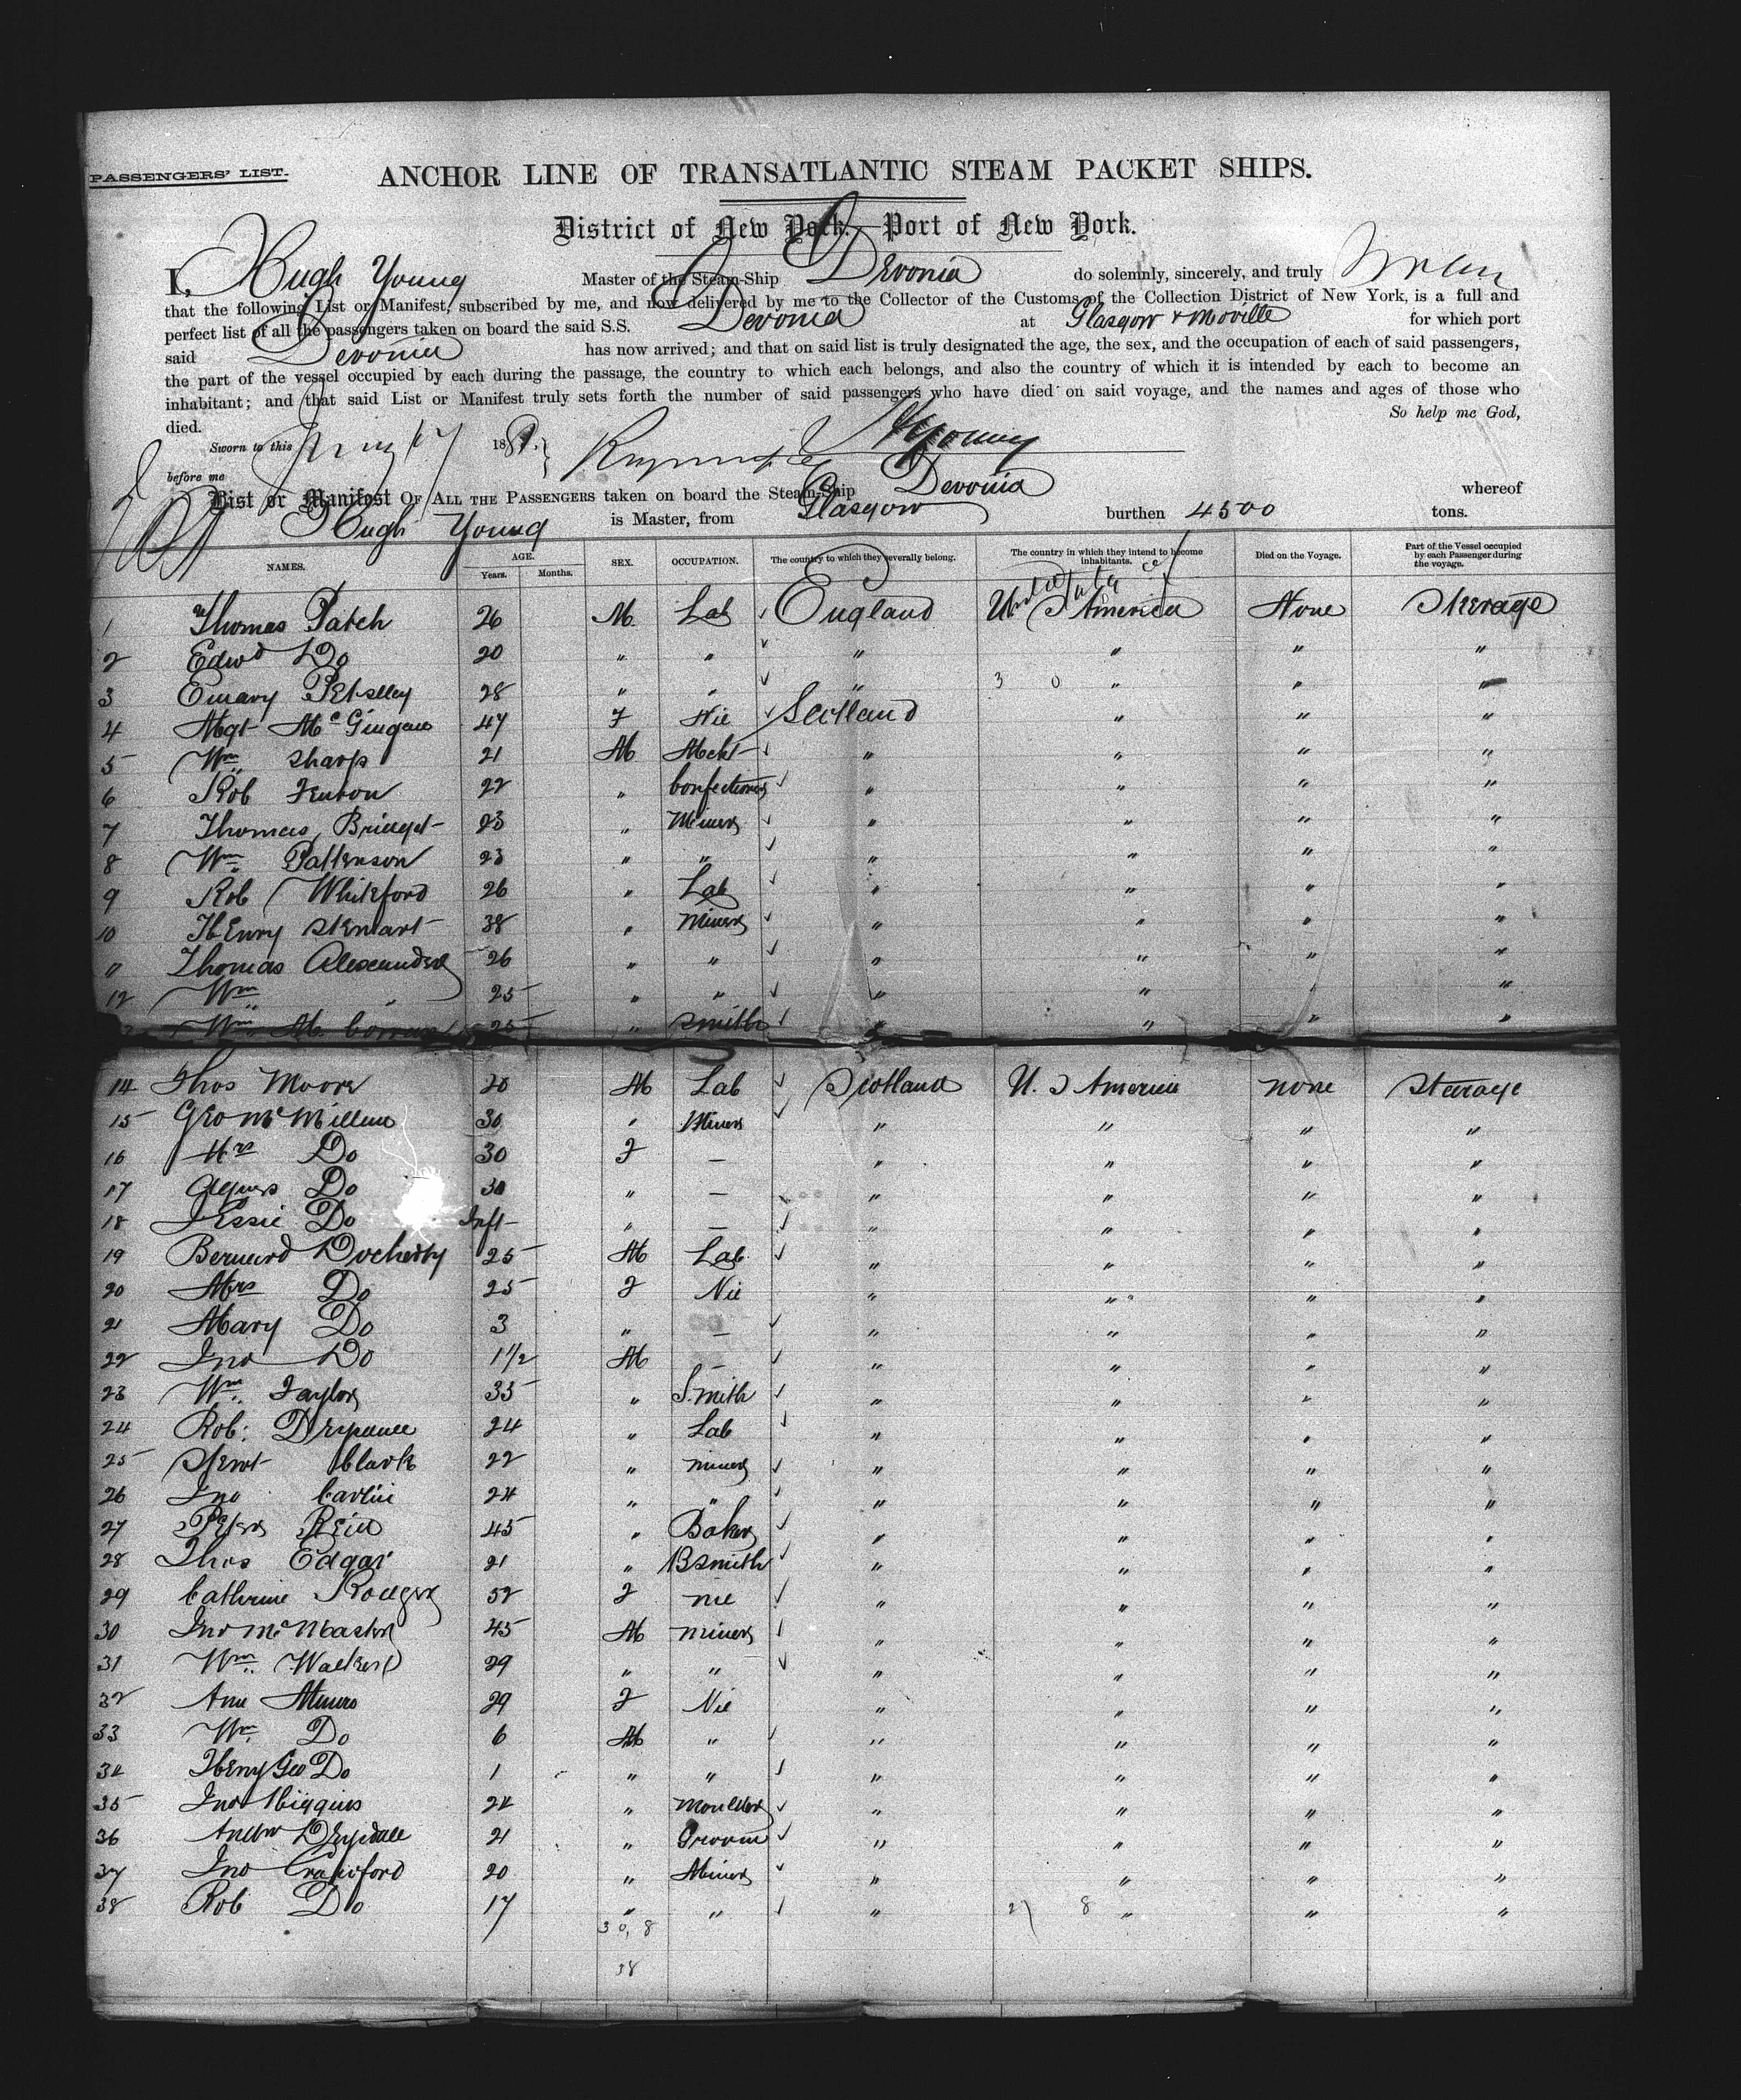 PASSENGERS' LIST.
ANCHOR LINE OF TRANSATLANTIC STEAM PACKET SHIPS.
District of New York.—Port of New York.
I, Hugh Young Master of the Steam-Ship Devonia do solemnly, sincerely, and truly
that the following List or Manifest, subscribed by me, and now delivered by me to the Collector of the Customs of the Collection District of New York, is a full and
perfect list of all the passengers taken on board the said S.S. Devonia at Glasgow & Moville for which port
said Devonia has now arrived; and that on said list is truly designated the age, the sex, and the occupation of each of said passengers,
the part of the vessel occupied by each during the passage, the country to which each belongs, and also the country of which it is intended by each to become an
inhabitant; and that said List or Manifest truly sets forth the number of said passengers who have died on said voyage, and the names and ages of those who
died. So help me God,
Sworn to this May 17 188 HYoung
before me
List or Manifest OF ALL THE PASSENGERS taken on board the Steam-Ship Devonia whereof
Hugh Young is Master, from Glasgow burthen 4500 tons.
NAMES. AGE. Years. Months. SEX. OCCUPATION. The country to which they severally belong. The country in which they intend to become inhabitants. Died on the Voyage. Part of the Vessel occupied by each Passenger during the voyage.
1 Thomas Patch 26 M Lab England United States of America None Steerage
2 Edwd Do 20 " " " " " "
3 28 " " " 3 0 " " "
4 Mgt 47 F Nil Scotland " " "
5 Wm Sharp 21 M " " " "
6 Rob Fenton 22 " Confectioner " " " "
7 Thomas Bridget 23 " Miner " " " "
8 Wm Patterson 23 " " " " " "
9 Rob Whiteford 26 " Lab " " " "
10 Henry Stewart 38 " Miner " " " "
11 Thomas Alexander 26 " " " " " "
12 Wm " 25 " " " " " "
Wm 25 " Smith " " " "
14 Thos Moore 20 M Lab Scotland U. S America none Steerage
15 Geo McMillan 30 " Miner " " " "
16 Mrs Do 30 F — " " " "
17 Agnes Do " — " " " "
18 Jessie Do Inft " — " " " "
19 Bernard Docherty 25 M Lab " " " "
20 Mrs Do 25 F Nil " " " "
21 Mary Do 3 " — " " " "
22 Jno Do 1 1/2 M — " " " "
23 Wm Taylor 35 " Smith " " " "
24 Rob: 24 " Lab " " " "
25 Stewt Clark 22 " miner " " " "
26 Jno Carlin 24 " " " " " "
27 Peter Reid 45 " Baker " " " "
28 Thos Edgar 21 " Bsmith " " " "
29 Catherine Rodger 52 F nil " " " "
30 Jno McMaster 45 M miner " " " "
31 Wm Walker 29 " " " " " "
32 Ann Munro 29 F Nil " " " "
33 Wm Do 6 M " " " " "
34 Heny Geo Do 1 " " " " " "
35 Jno Higgins 24 " Moulder " " " "
36 Andw Drysdale 21 " Groom " " " "
37 Jno Crawford 20 " Miner " " " "
38 Rob Do 17 " " " 8 " " "
30, 8
38